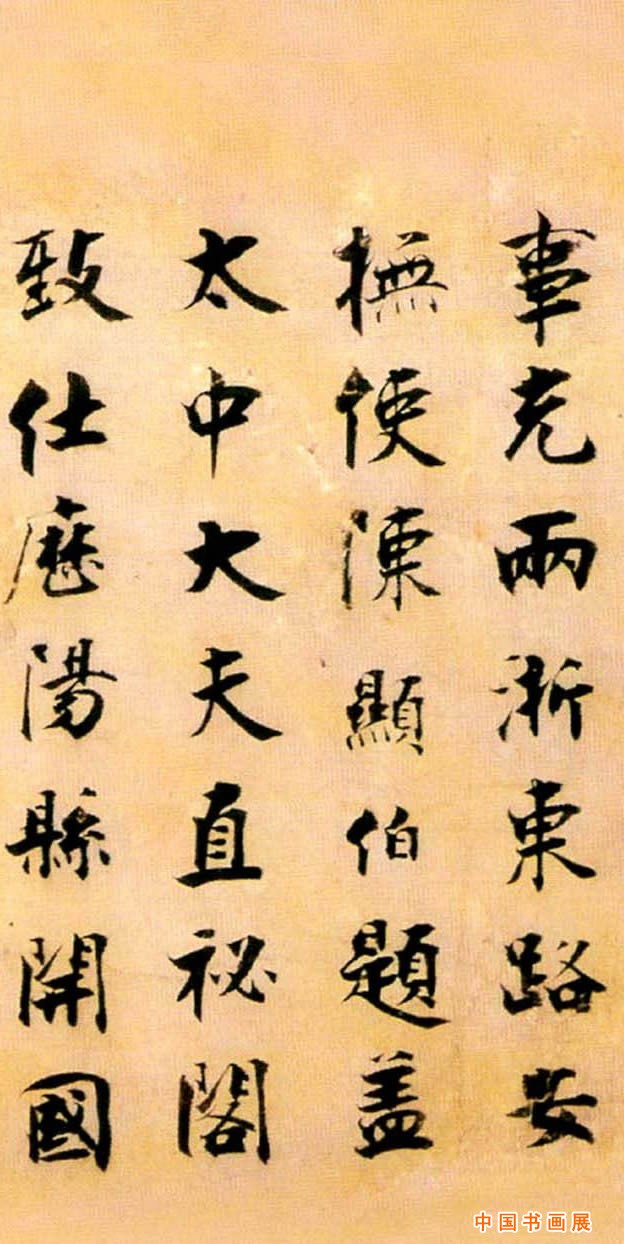 事充兩浙東路安
撫使陳顯伯題盖
太中大夫直祕閣
致仕歷陽縣開國
中国书画展